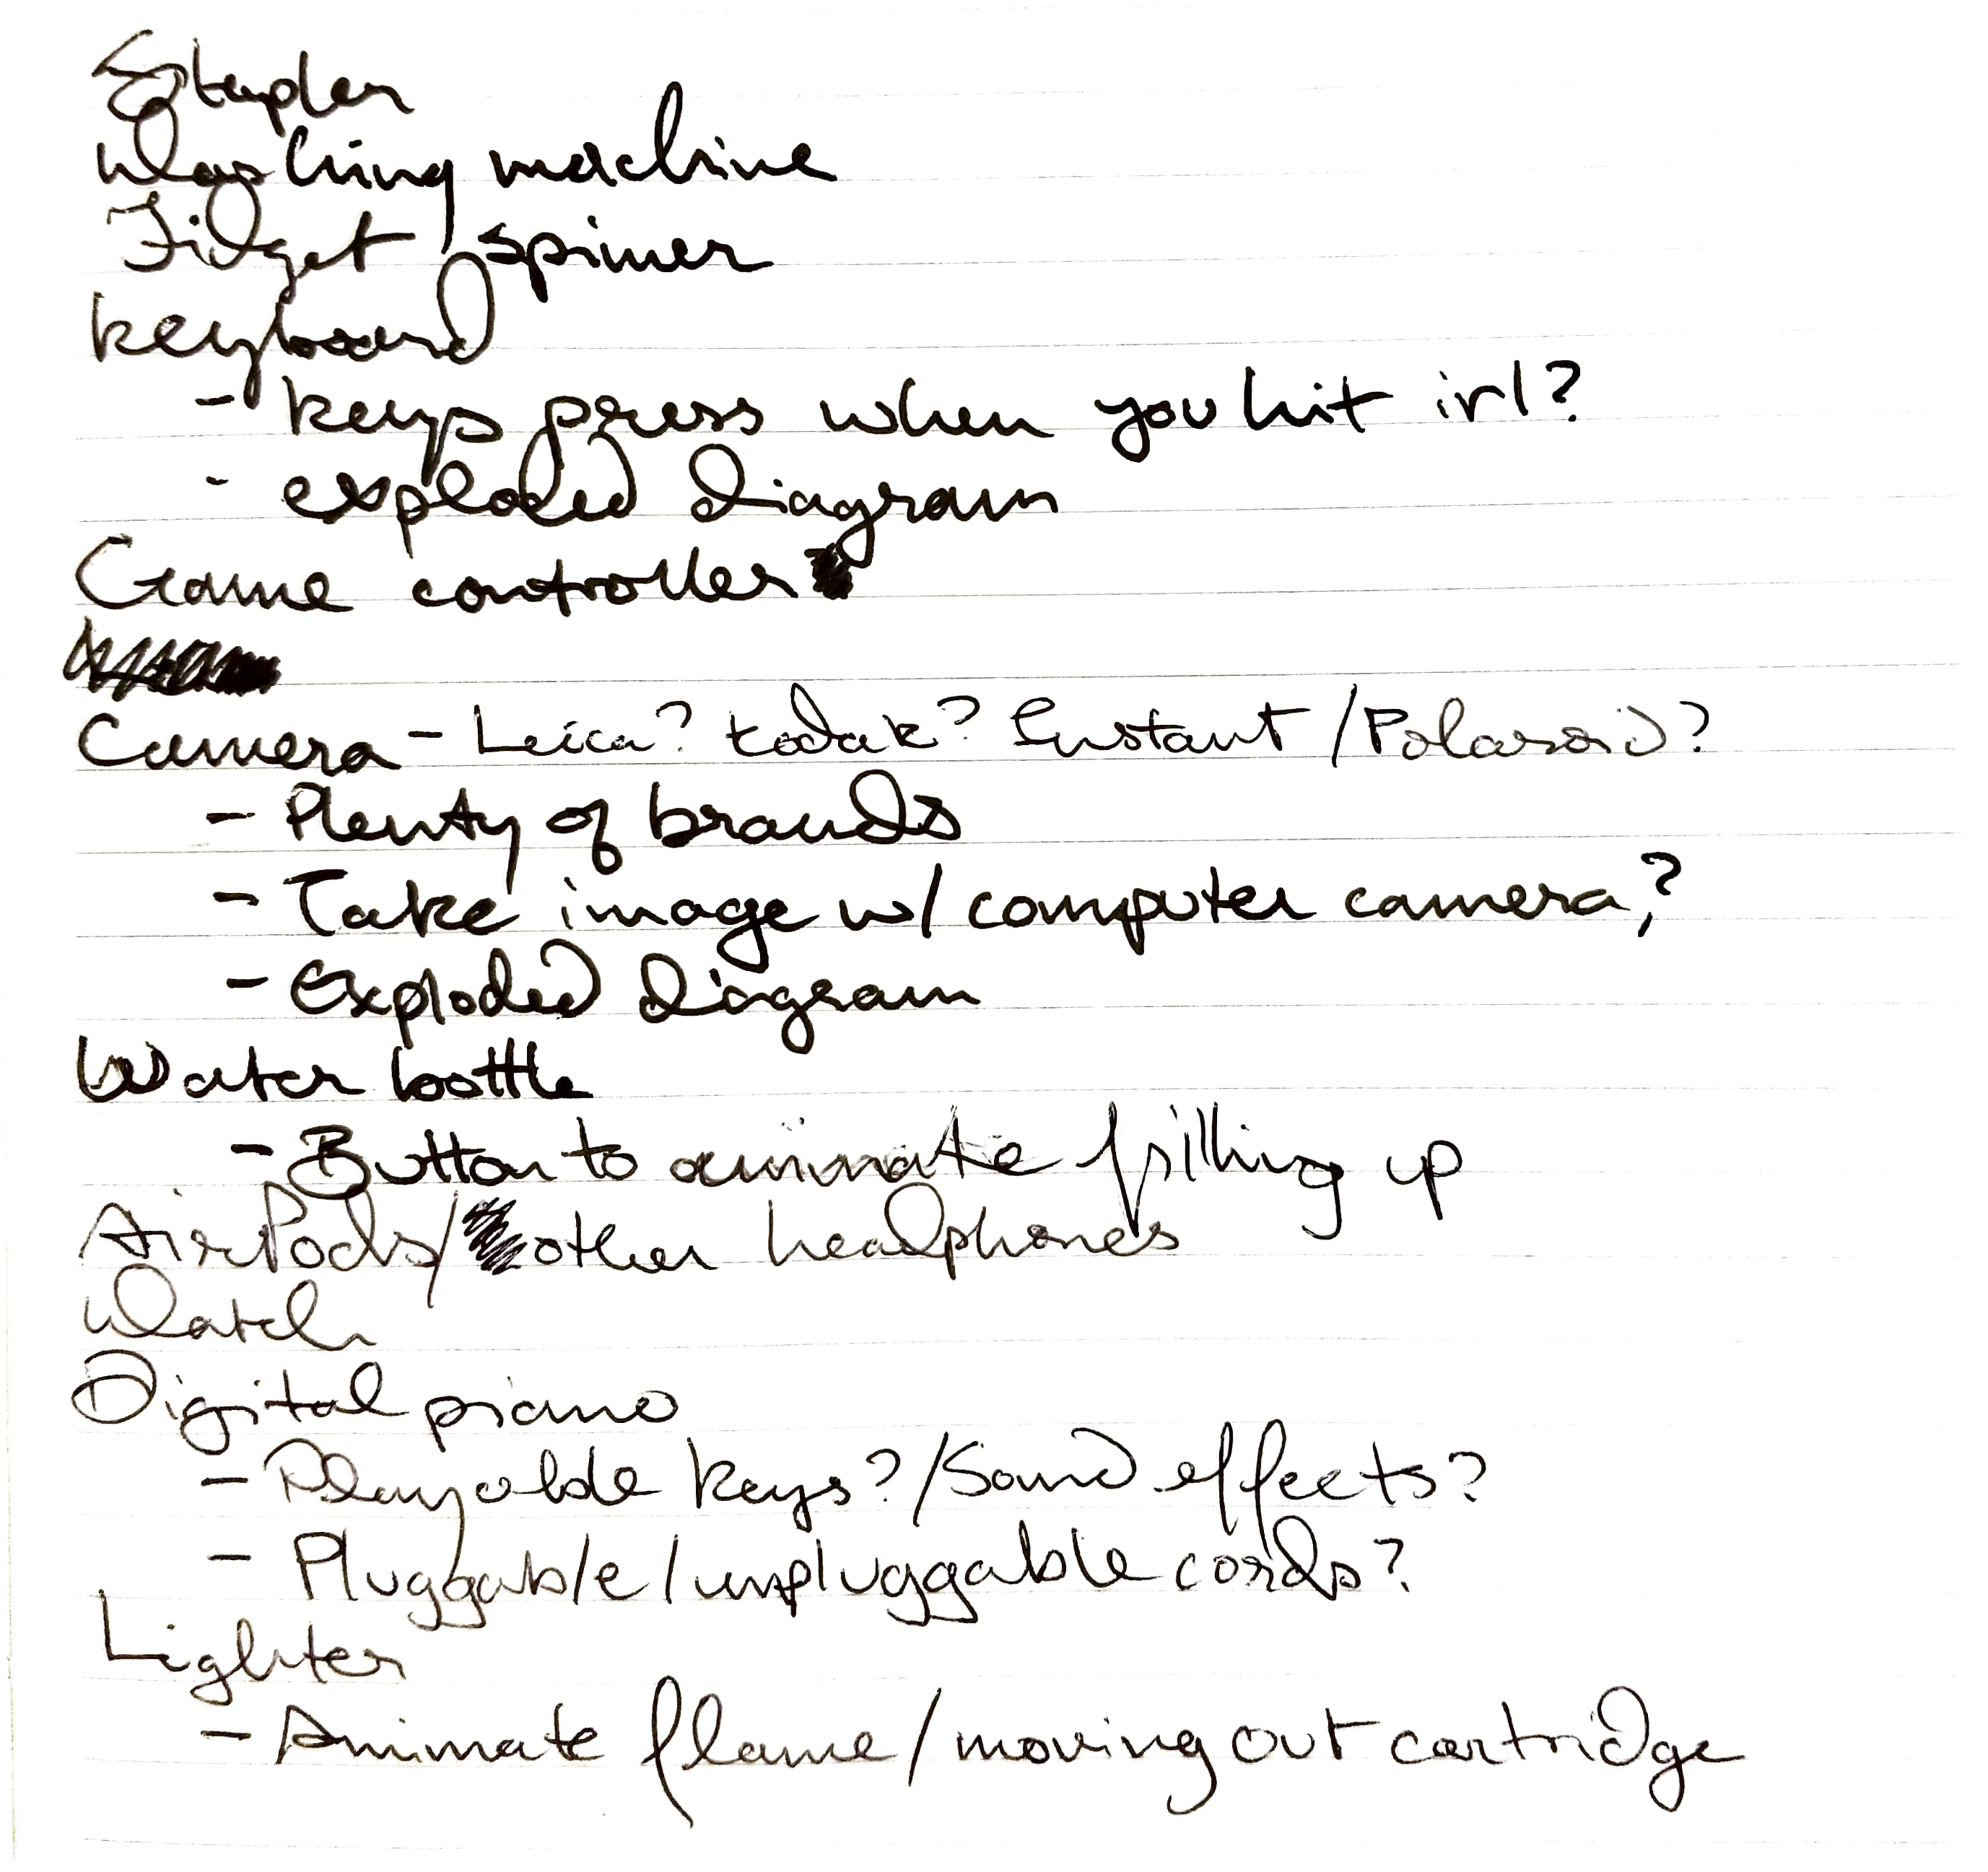 Stapler
Washing machine
Fidget spinner
keyboard
- keys press when you hit irl?
- exploded diagram
Game controller
Camera - Leica? Kodak? Instant / Polaroid?
- Plenty of brands
- Take image w/ computer camera?
- Exploded diagram
Water bottle
- Button to animate filling up
AirPods/ other headphones
Watch
Digital piano
- Playable keys?/Sound effects?
- Pluggable/unpluggable cords?
Lighter
- Animate flame/moving out cartridge